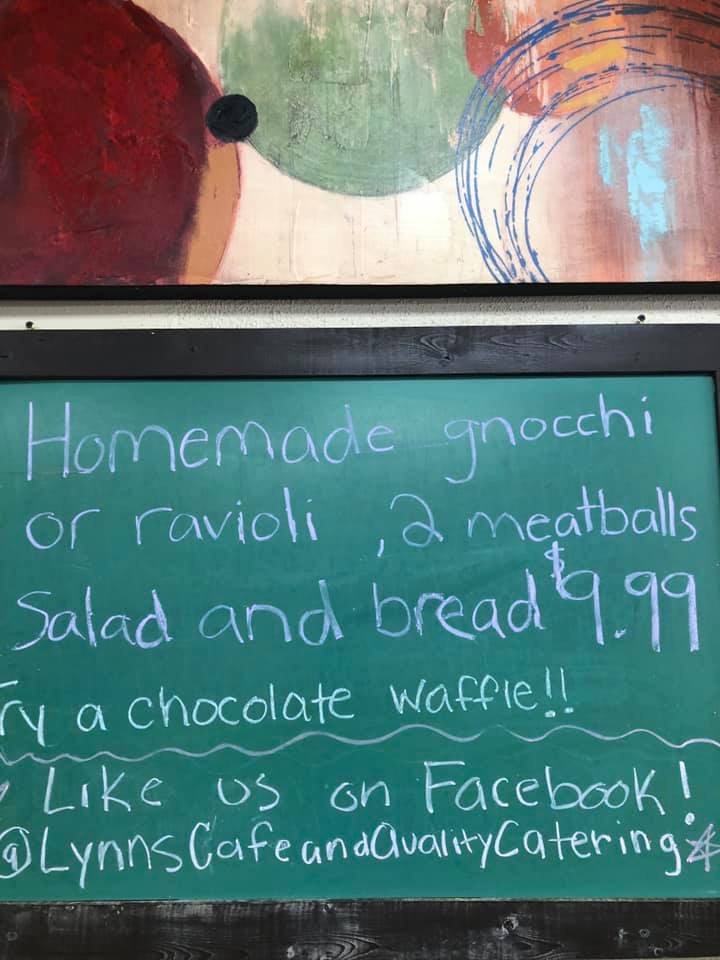 Homemade gnocchi
or ravioli , 2 meatballs
Salad and bread $9.99
Try a chocolate waffle!!
Like us on Facebook!
@LynnsCafeandQualityCatering